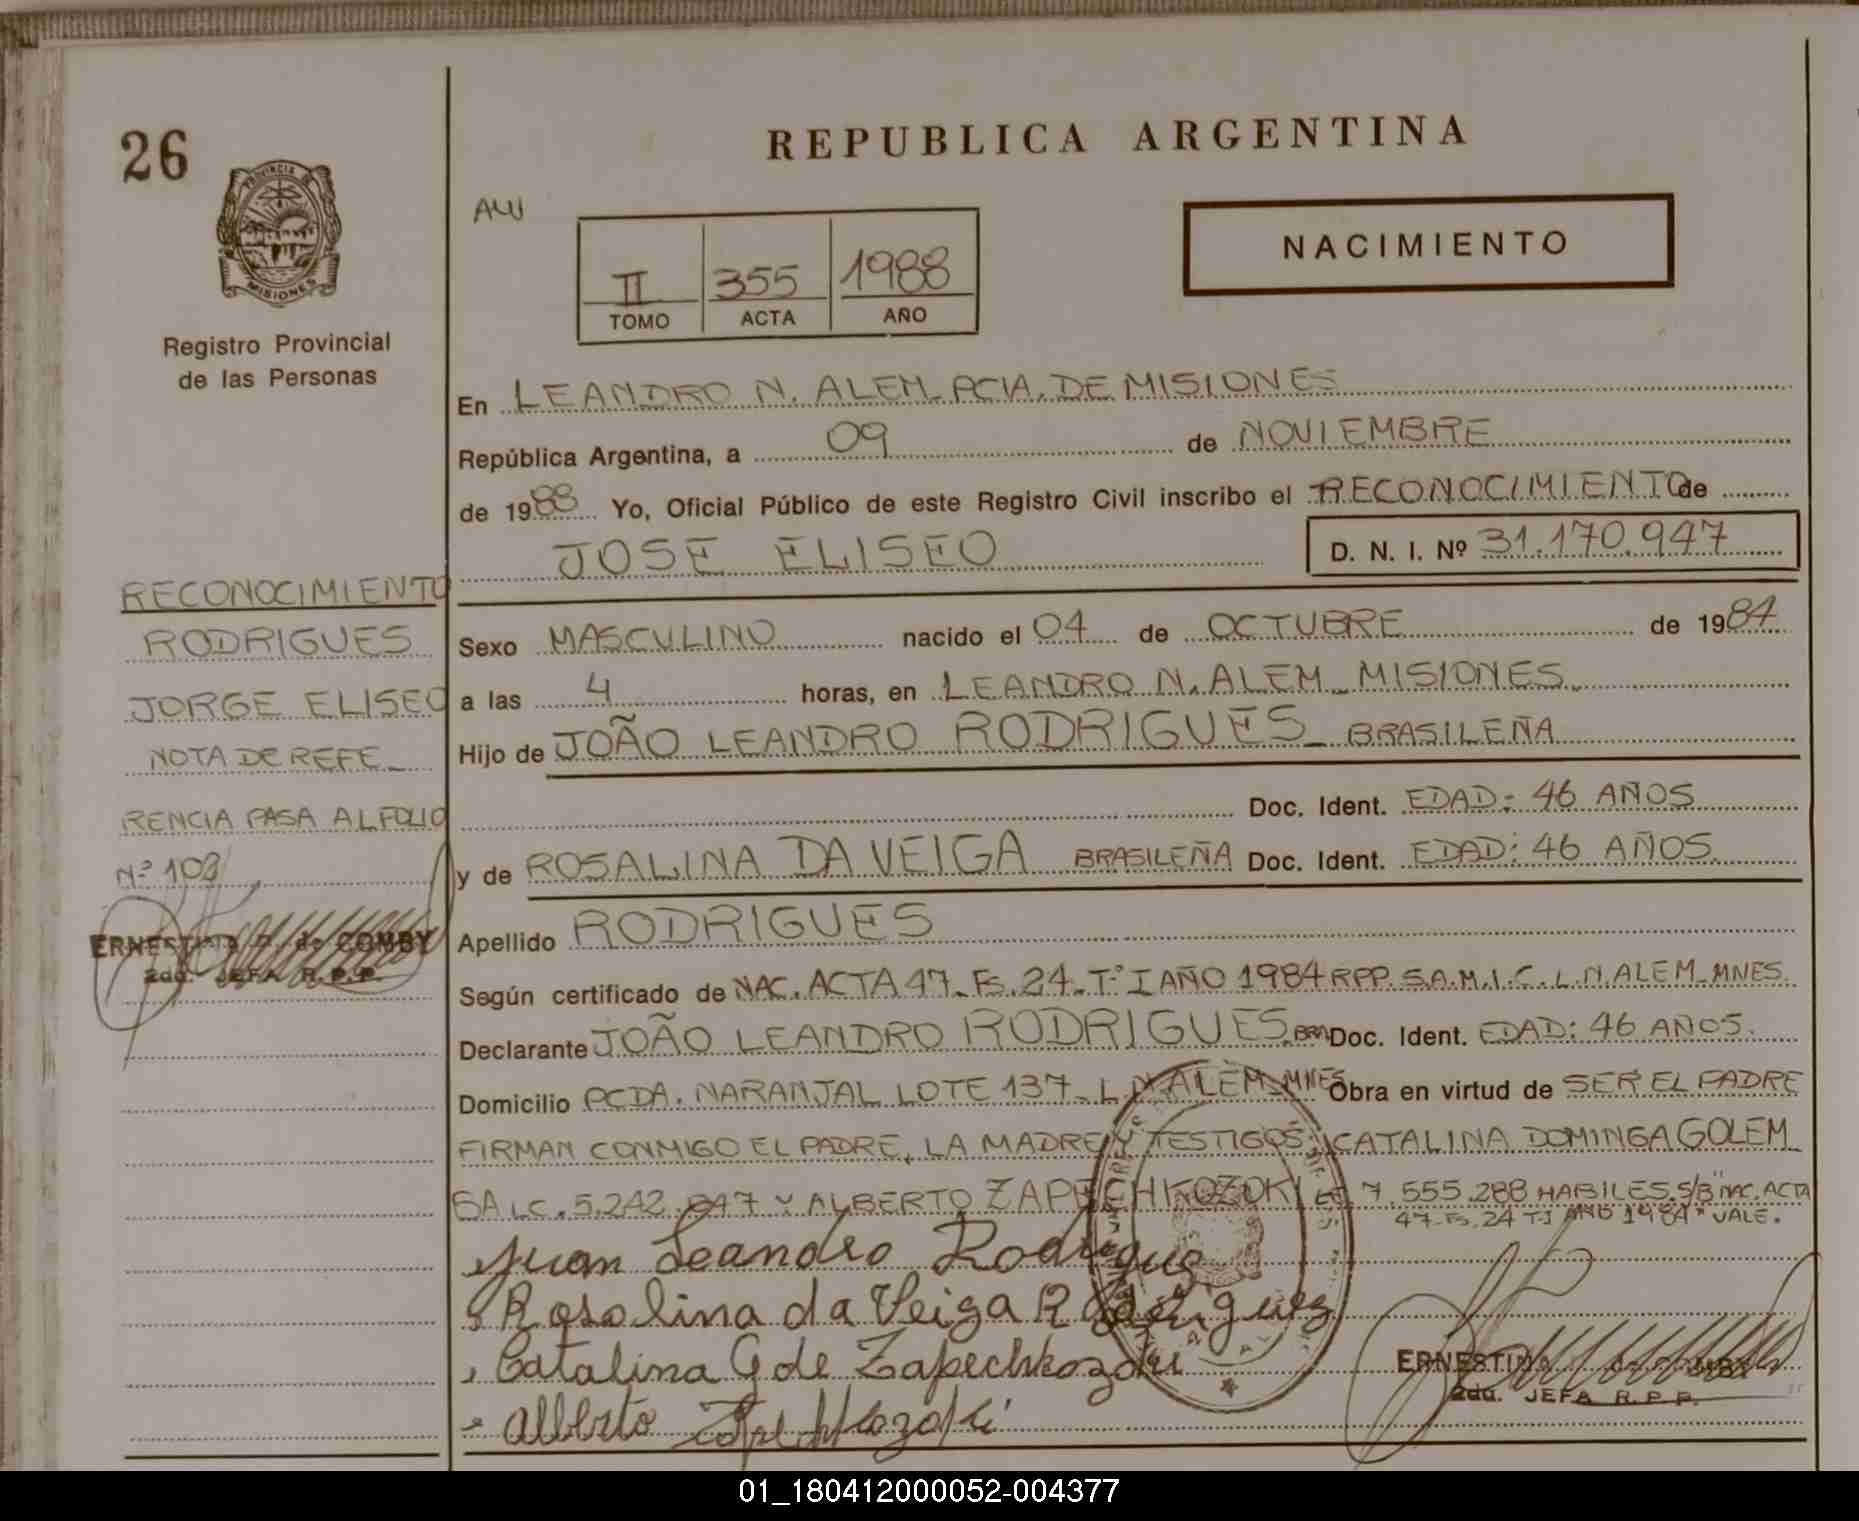 26
REPUBLICA ARGENTINA
PROVINCIA DE
MISIONES
Registro Provincial
de las Personas
II 355 1988
TOMO ACTA AÑO
NACIMIENTO
En LEANDRO N. ALEM_PCIA. DE MISIONES
República Argentina, a 09 de NOVIEMBRE
de 1988 Yo, Oficial Público de este Registro Civil inscribo el RECONOCIMIENTO de
JOSE ELISEO D. N. I. Nº 31.170.947
RECONOCIMIENTO
RODRIGUES
JORGE ELISEO
NOTA DE REFE_
RENCIA PASA AL FOLIO
Nº 103
ERNESTINA de COMBY
2da. JEFA R.P.P.
Sexo MASCULINO nacido el 04 de OCTUBRE de 1984
a las 4 horas, en LEANDRO N. ALEM_MISIONES.
Hijo de JOÃO LEANDRO RODRIGUES_BRASILEÑA
Doc. Ident. EDAD: 46 AÑOS
y de ROSALINA DA VEIGA BRASILEÑA Doc. Ident. EDAD: 46 AÑOS.
Apellido RODRIGUES
Según certificado de NAC. ACTA 47_Fs. 24_Tº I AÑO 1984 RPP. S.A.M.I.C. L.N. ALEM_MNES.
Declarante JOÃO LEANDRO RODRIGUES. BRA Doc. Ident. EDAD: 46 AÑOS.
Domicilio PCDA. NARANJAL LOTE 137_L.N. ALEM_MNES Obra en virtud de SER EL PADRE
FIRMAN CONMIGO EL PADRE, LA MADRE Y TESTIGOS: CATALINA DOMINGA GOLEM_
BA LC. 5.242. Y ALBERTO ZAPECHKOZOKI LE. 7.555.288 HABILES. S/B "NAC. ACTA
47_Fs. 24 T.I AÑO 1984" VALE.
Juan Leandro Rodrigue
Rosolina da Veiga Rodriguez
Catalina G de Zapechkozoki
Alberto
ERNESTINA
2da. JEFA R.P.P.
01_180412000052-004377